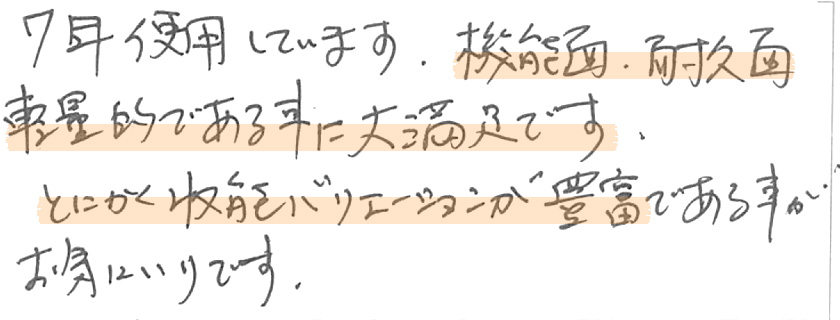 7年使用しています. 機能面.耐久面
軽量的である事に大満足です.
とにかく収能バリエーションが豊富である事が
お気にいりです.